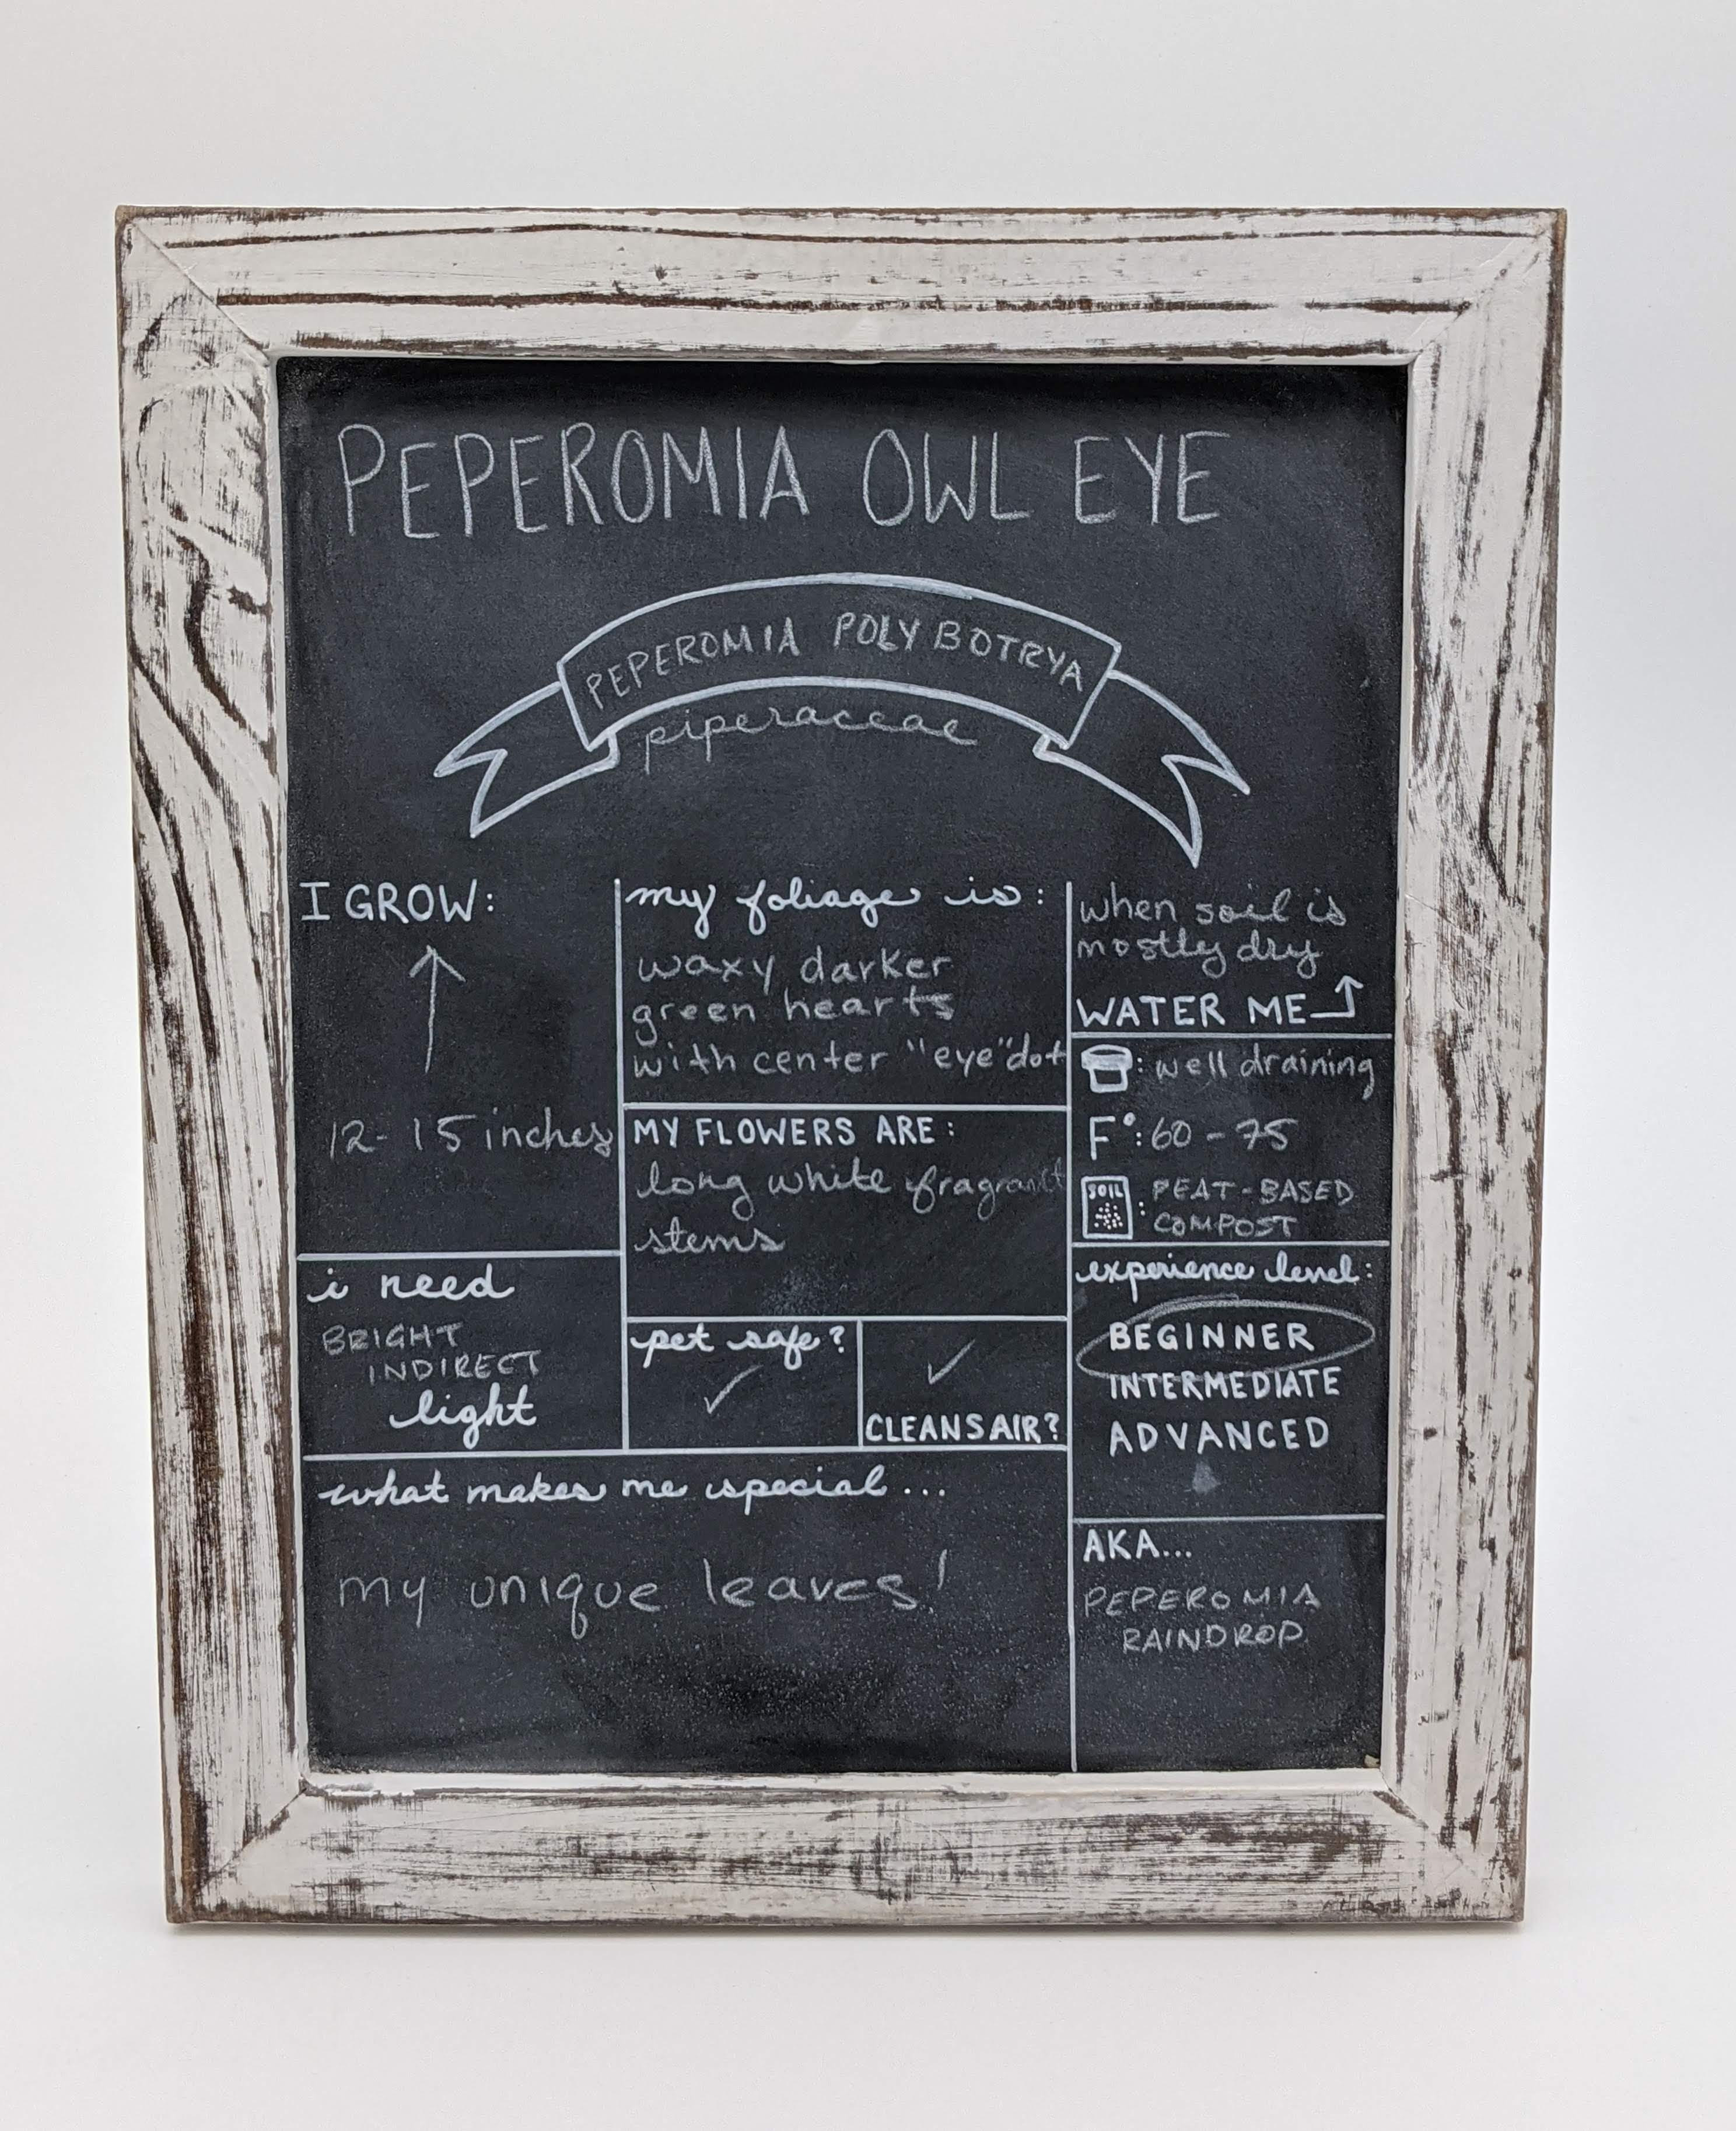 PEPEROMIA OWL EYE
PEPEROMIA POLYBOTRYA
piperaceae
I GROW:
12-15 inches
i need
BRIGHT
INDIRECT
light
my foliage is:
waxy darker
green hearts
with center "eye" dot
MY FLOWERS ARE:
long white fragrant
stems
pet safe?
CLEANS AIR?
what makes me special...
my unique leaves!
when soil is
mostly dry
WATER ME
: well draining
F°: 60-75
SOIL
: PEAT-BASED
COMPOST
experience level:
BEGINNER
INTERMEDIATE
ADVANCED
AKA...
PEPEROMIA
RAINDROP